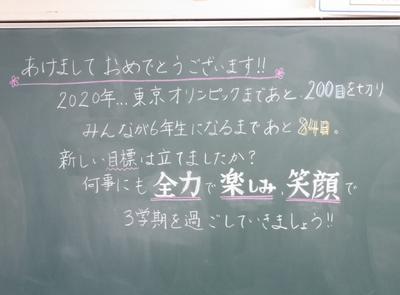 あけまして おめでとうございます!!
2020年...東京オリンピックまであと、200日を切り
みんなが6年生になるまであと84日。
新しい目標は立てましたか?
何事にも全力で楽しみ、笑顔で
3学期を過ごしていきましょう!!